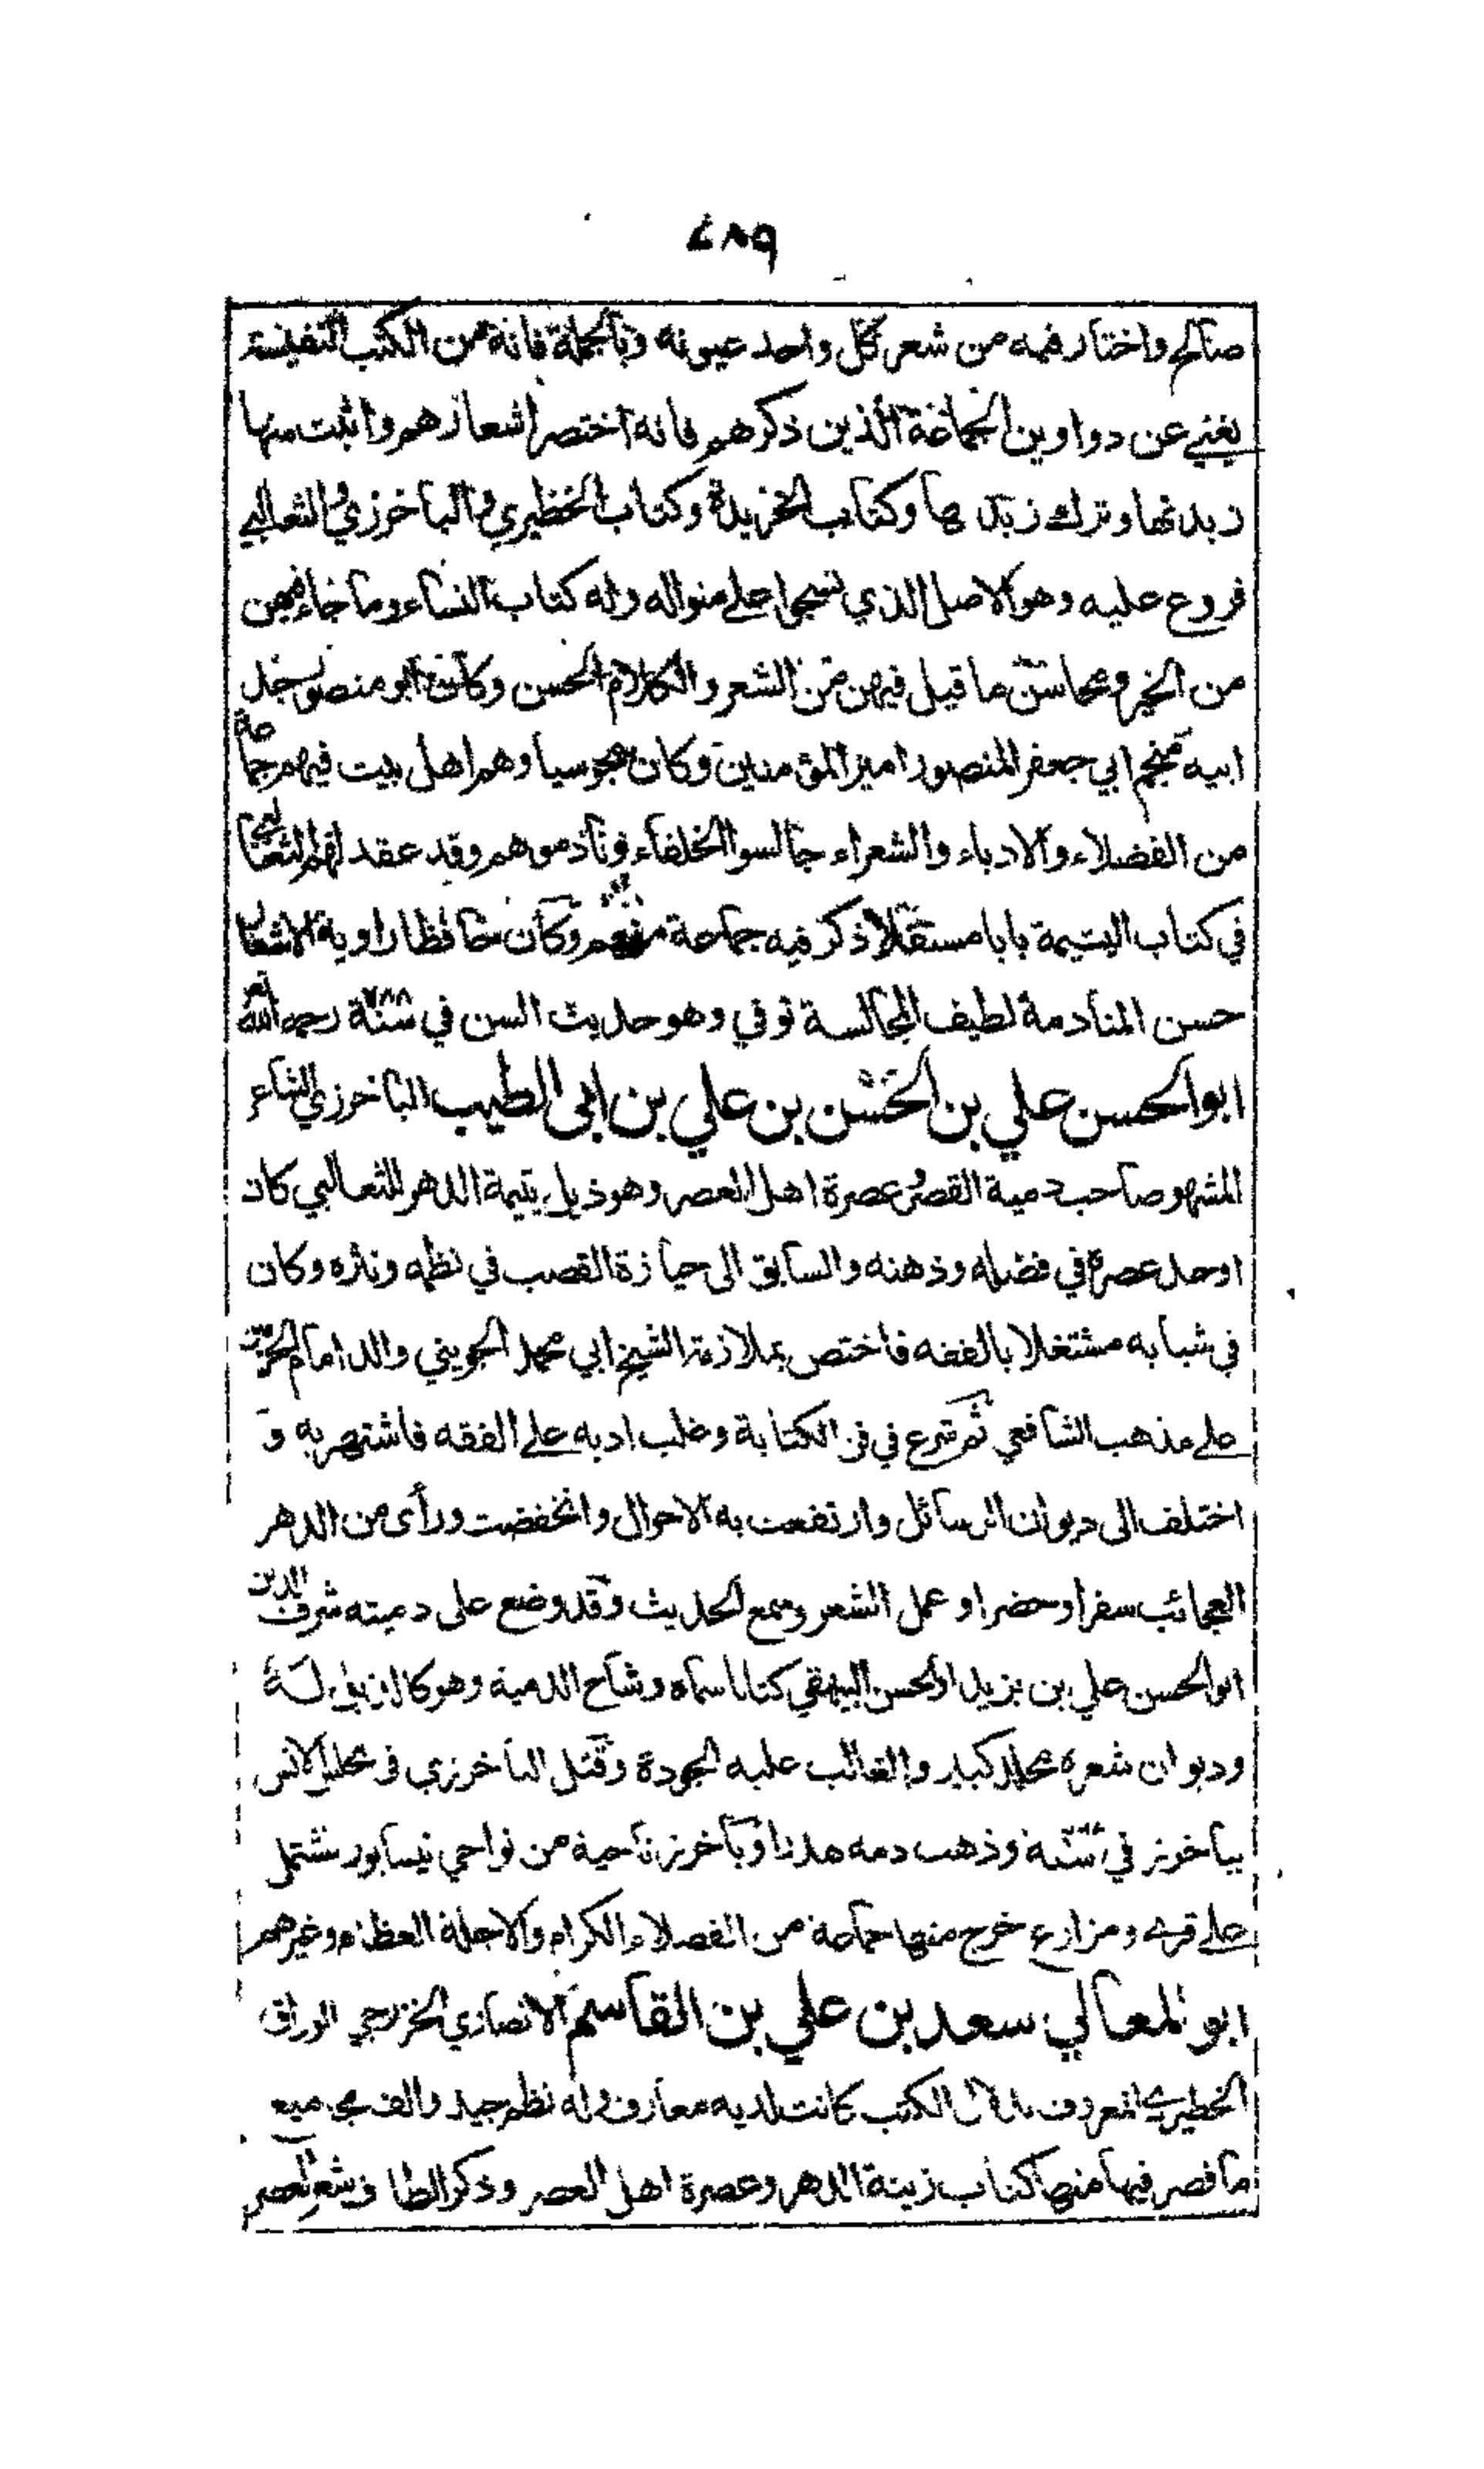 ٤٨٩
صالح واختار فيه من شعر كل واحد عيونه وبالجملة فانه من الكتب النفيسة
يغني عن دواوين الجماعة الذين ذكرهم فانه اختصر اشعارهم واثبت منها
زبدتها وترك زبدها وكتاب الخريدة وكتاب الخطيري والباخرزي والثعالبي
فروع عليه وهو الاصل الذي نسجوا على منواله وله كتاب النساء وما جاء فيهن
من الخير ومحاسن ما قيل فيهن من الشعر والكلام الحسن وكان ابو منصور جد
ابيه منجم ابي جعفر المنصور امير المؤمنين وكان مجوسيا وهم اهل بيت فيهم جماعة
من الفضلاء والادباء والشعراء جالسوا الخلفاء ونادموهم وقد عقد لهم الثعالبي
في كتاب اليتيمة بابا مستقلا ذكر فيه جماعة منهم وكان حافظا راوية للاشعار
حسن المنادمة لطيف المجالسة توفي وهو حديث السن في سنة ٢٨٨ رحمه الله
ابو الحسن علي بن الحسن بن علي بن ابى الطيب الباخرزي الشاعر
المشهو صاحب دمية القصر عصرة اهل العصر وهو ذيل يتيمة الدهر للثعالبي كان
اوحد عصره في فضله وذهنه والسابق الى حيازة القصب في نظمه ونثره وكان
في شبابه مشتغلا بالفقه فاختص بملازمة الشيخ ابي محمد الجويني والد امام الحرمين
على مذهب الشافعي ثم شرع في فن الكتابة وغلب ادبه على الفقه فاشتهر به و
اختلف الى ديوان الرسائل وارتفعت به الاحوال وانخفضت ورأى من الدهر
العجائب سفرا وحضرا وعمل الشعر وسمع الحديث وقد وضع على دميته شرف الدين
ابو الحسن علي بن يزيد ابو الحسن البيهقي كتابا سماه وشاح الدمية وهو كالذيل له
وديوان شعره مجلد كبير والغالب عليه الجودة وقتل الباخرزي في مجلس الانس
بباخرز في سنة وذهب دمه هدرا وباخرز ناحية من نواحي نيسابور تشتمل
على قرى ومزارع خرج منها جماعة من الفضلاء الكرام والاجلة العظام وغيرهم
ابو المعالي سعد بن علي بن القاسم الانصاري الخزرجي الوراق
الخطيري المعروف بدلال الكتب كانت لديه معارف وله نظم جيد والف مجاميع
ما قصر فيها منها كتاب زينة الدهر وعصرة اهل العصر وذكر الطا وشعر العصر